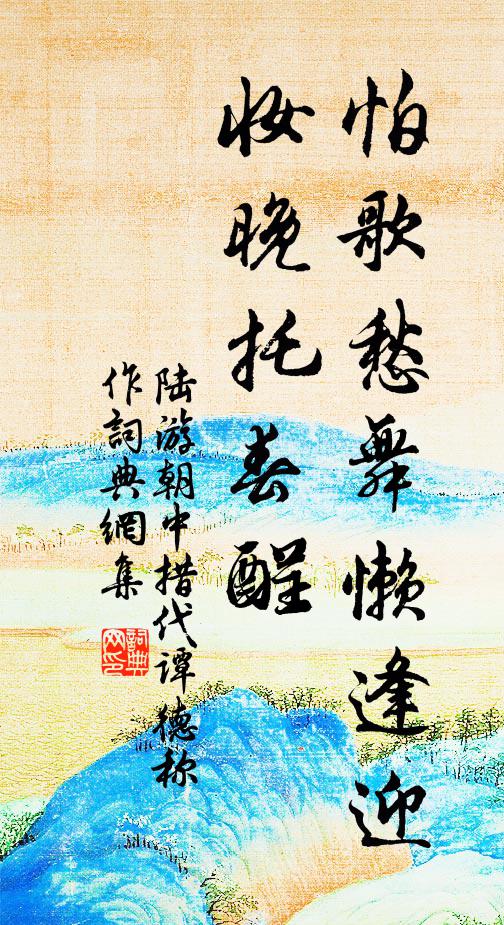 怕歌愁舞懒逢迎
妆晚托春酲
陆游朝中措代谭德称
作词典網集
詞典网印